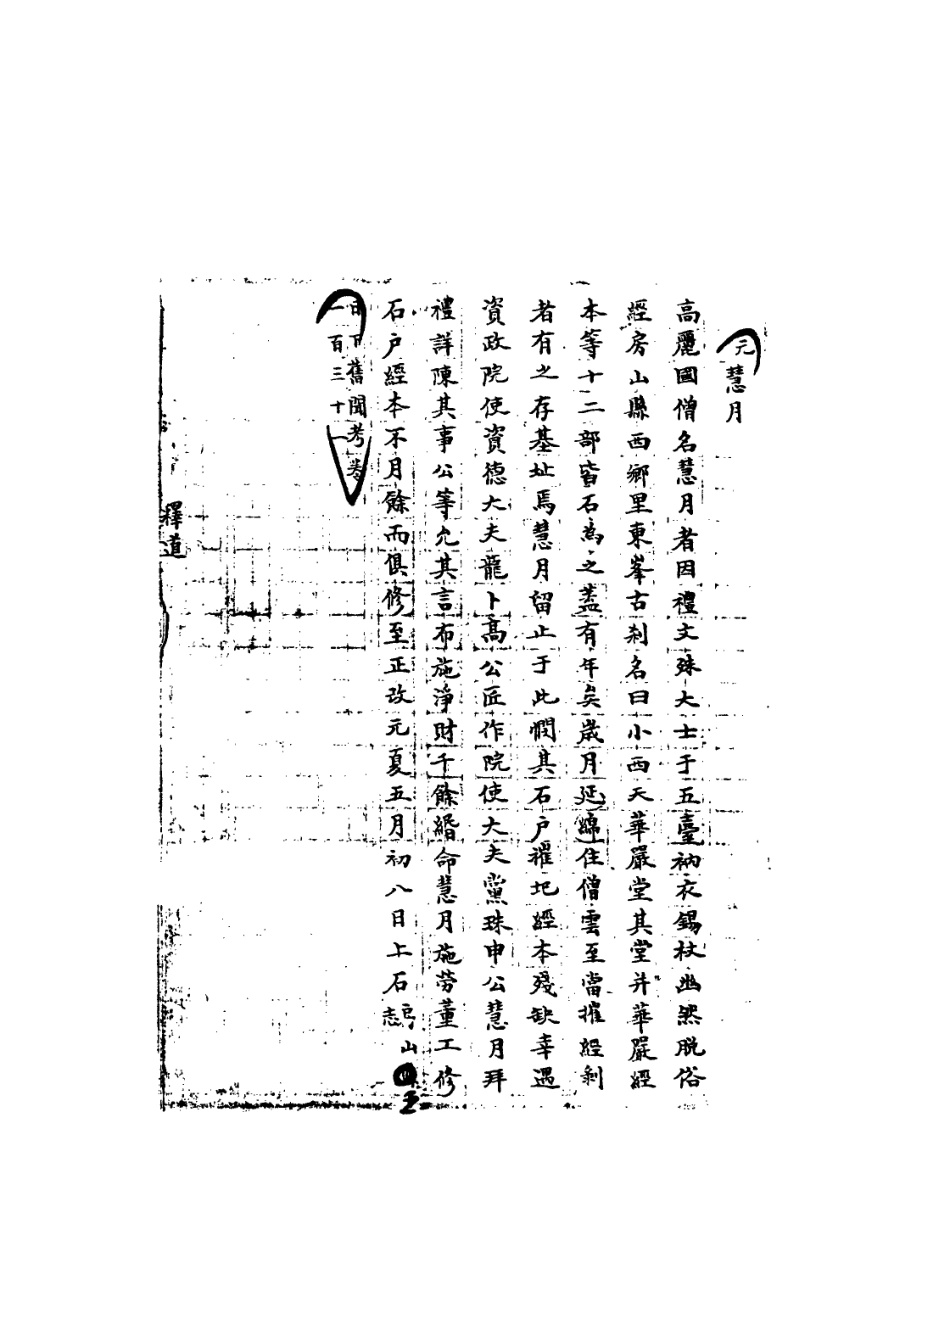 元慧月
高麗國僧名慧月者因禮文殊大士于五臺衲衣錫杖幽然脫俗
經房山縣西鄉里東峯古刹名曰小西天華嚴堂其堂幷華嚴經
本等十二部皆石為之盖有年矣歲月延綿住僧雲至當摧經剥
者有之存基址焉慧月留止于此憫其石户摧圮經本殘缺幸遇
資政院使資德大夫龍卜高公匠作院使大夫黨珠申公慧月拜
禮詳陳其事公等允其言布施淨財千餘緡命慧月施勞董工修
石户經本不月餘而俱修至正改元夏五月初八日上石 房山
志
日下舊聞考卷
一百三十一
釋道